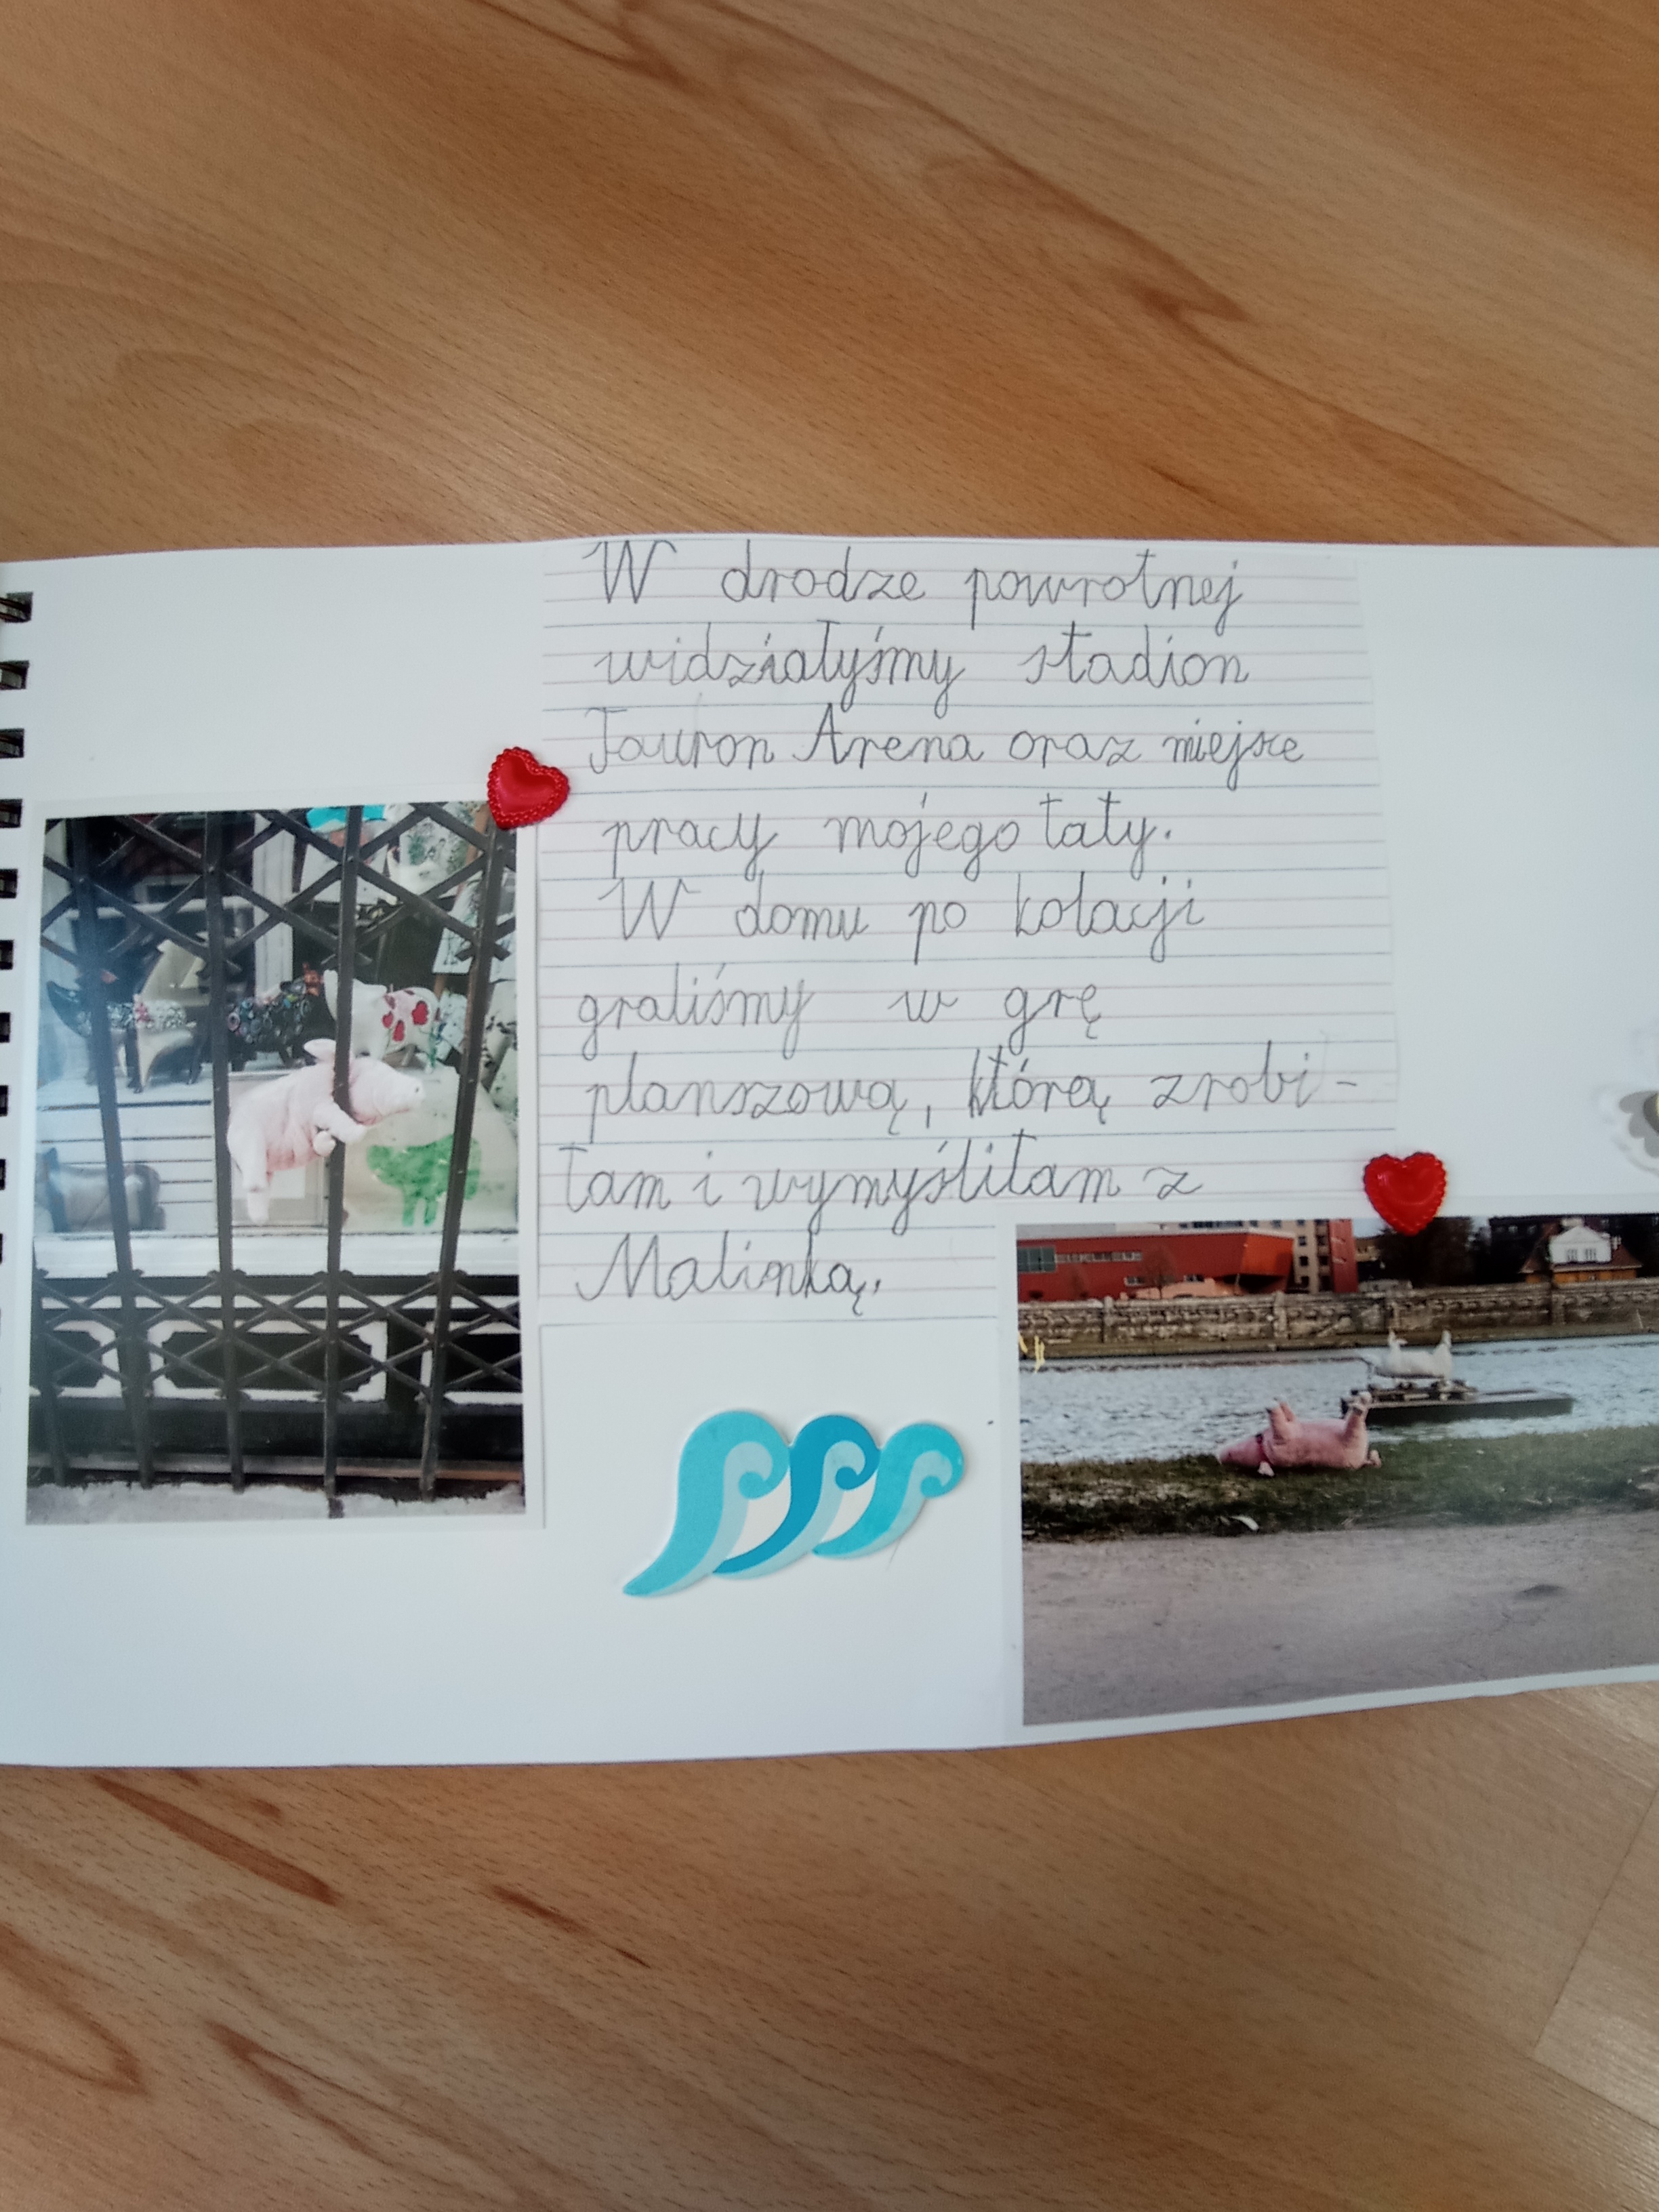 W drodze powrotnej
widziałyśmy stadion
Tauron Arena oraz miejsce
pracy mojego taty.
W domu po kolacji
graliśmy w grę
planszową, którą zrobi-
łam i wymyśliłam z
Malinką.